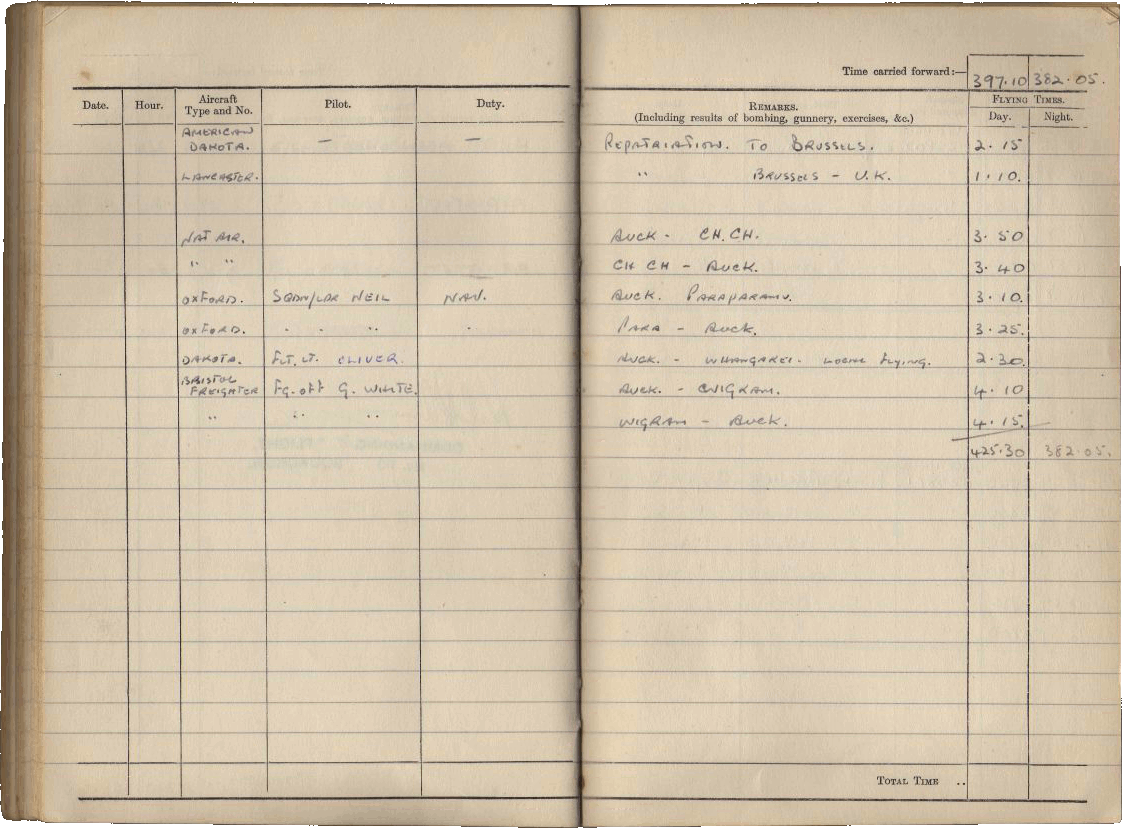 Time carried forward:— 397.10 382.05.
Date. Hour. Aircraft Type and No. Pilot. Duty. REMARKS. (Including results of bombing, gunnery, exercises, &c.) FLYING TIMES. Day. Night.
AMERICAN DAKOTA. — — REPATRIATION. TO BRUSSELS. 2.15
LANCASTER. " BRUSSELS - U.K. 1.10.
NAT AIR. AUCK - CH.CH. 3.50
" " CH CH - AUCK. 3.40
OXFORD. SQDN/LDR NEIL NAV. AUCK. PARAPARAMU. 3.10.
OXFORD. " " " PARA - AUCK. 3.25.
DAKOTA. FLT.LT. CLIVER. AUCK. - WHANGAREI. LOCAL FLYING. 2.30
BRISTOL FREIGHTER FG.OFF G. WHITE. AUCK. - WIGRAM. 4.10
" " " WIGRAM - AUCK. 4.15.
425.30 382.05.
TOTAL TIME ..